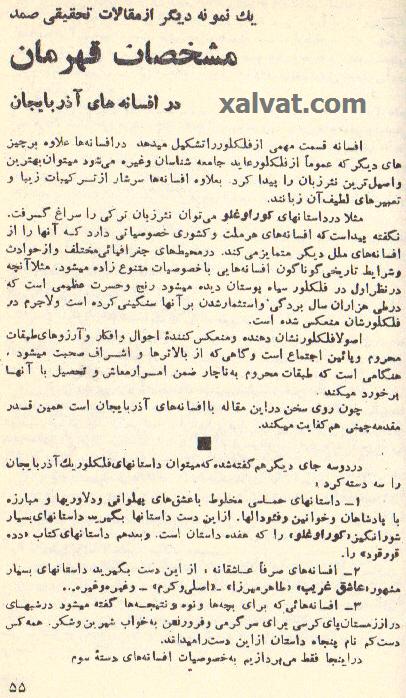 یك نمونه دیگر از مقالات تحقیقی صمد
مشخصات قهرمان
در افسانه های آذربایجان
xalvat.com
افسانه قسمت مهمی از فلکلور را تشکیل میدهد در افسانه‌ها علاوه بر چیز
های دیگر که عموماً از فلکلور عاید جامعه شناسان وغیره می‌شود میتوان بهترین
واصیل‌ترین نثر زبان را پیدا کرد. بعلاوه افسانه‌ها سرشار از ترکیبات زیبا و
تعبیرهای لطیف آن زبانند.
مثلا در داستانهای کوراوغلو می‌توان نثر زبان ترکی را سراغ گرفت.
نگفته پیداست که افسانه‌های هر ملت و کشوری خصوصیاتی دارد کـه آنها را از
افسانه‌های ملل دیگر متمایز می‌کند. در محیط‌های جغرافیائی مختلف و از حوادث
و شرایط تاریخی گوناگون افسانه‌هایی با خصوصیات متنوع زاده میشود. مثلا آنچه
در نظر اول در فلکلور سیاه پوستان دیده میشود رنج وحسرت عظیمی است که
در طی هزاران سال بردگی و استثمار شدن بر آنها سنگینی کرده است ولاجرم در
فلکلورشان منعکس شده است.
اصولا فلکلور نشان دهنده و منعکس کنندهٔ احوال وافکار وآرزوهای طبقات
محروم وپائین اجتماع است وگاهی که از بالاترها و اشـراف صحبت میشود ،
هنگامی است که طبقات محروم به ناچار ضمن امرار معاش و تحصیل با آنهـا
برخورد میکند .
چون روی سخن در این مقاله با افسانه‌های آذربایجان است همین قـدر
مقدمه‌چینی هم کفایت میکند.
در دوسه جای دیگر هم گفته شده که میتوان داستانهای فلکلوریك آذربایجان
را سه دسته کرد :
۱ــ داستانهای حماسی مخلوط با عشق‌های پهلوانی ودلاوریها و مبارزه
با پادشاهان وخوانین وفئودالها. از این دست داستانها بگیرید داستانهای بسیار
شورانگیز «کوراوغلو» را که هفده داستان است. وبعد هم داستانهای کتاب «دده
قورقود» را.
۲ــ افسانه‌های صرفاً عـاشقانه : از این دست بگیرید داستانهای بسیار
مشهور «عاشق غریب» «طاهر میرزا» ــ «اصلی وکرم» ــ وغیره وغیره...
۳ــ افسانه‌هائی که برای بچه‌ها ونوه ونتیجه‌ها گفته میشود در شبهـای
دراز زمستان پای کرسی برای سرگرمی وفرورفتن به خواب شیرین وشکر. همه کس
دست کم نام پنجاه داستان از این دست را میداند.
در اینجا فقط می‌پردازیم به خصوصیات افسانه‌های دستهٔ سوم
۵۵